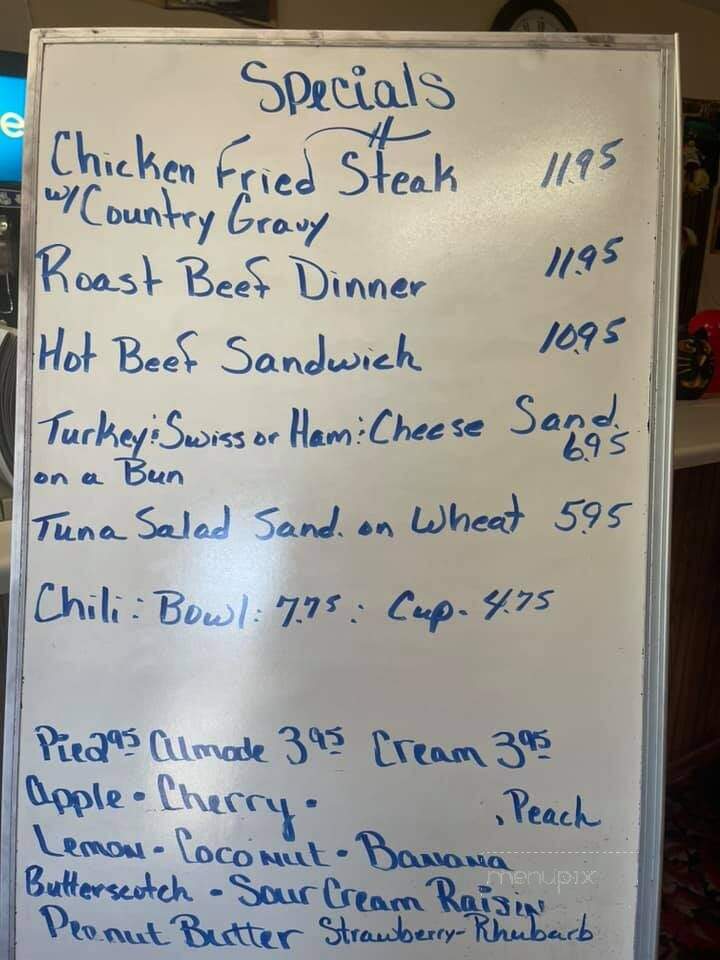 e
Specials
Chicken Fried Steak 11.95
w/ Country Gravy
Roast Beef Dinner 11.95
Hot Beef Sandwich 10.95
Turkey & Swiss or Ham & Cheese Sand.
on a Bun 6.95
Tuna Salad Sand. on Wheat 5.95
Chili: Bowl: 7.75: Cup- 4.75
Pie 2.95 Almode 3.95 Cream 3.95
Apple - Cherry - , Peach
Lemon - Coconut - Banana
Butterscotch - Sour Cream Raisin
Peanut Butter Strawberry-Rhubarb
menupix